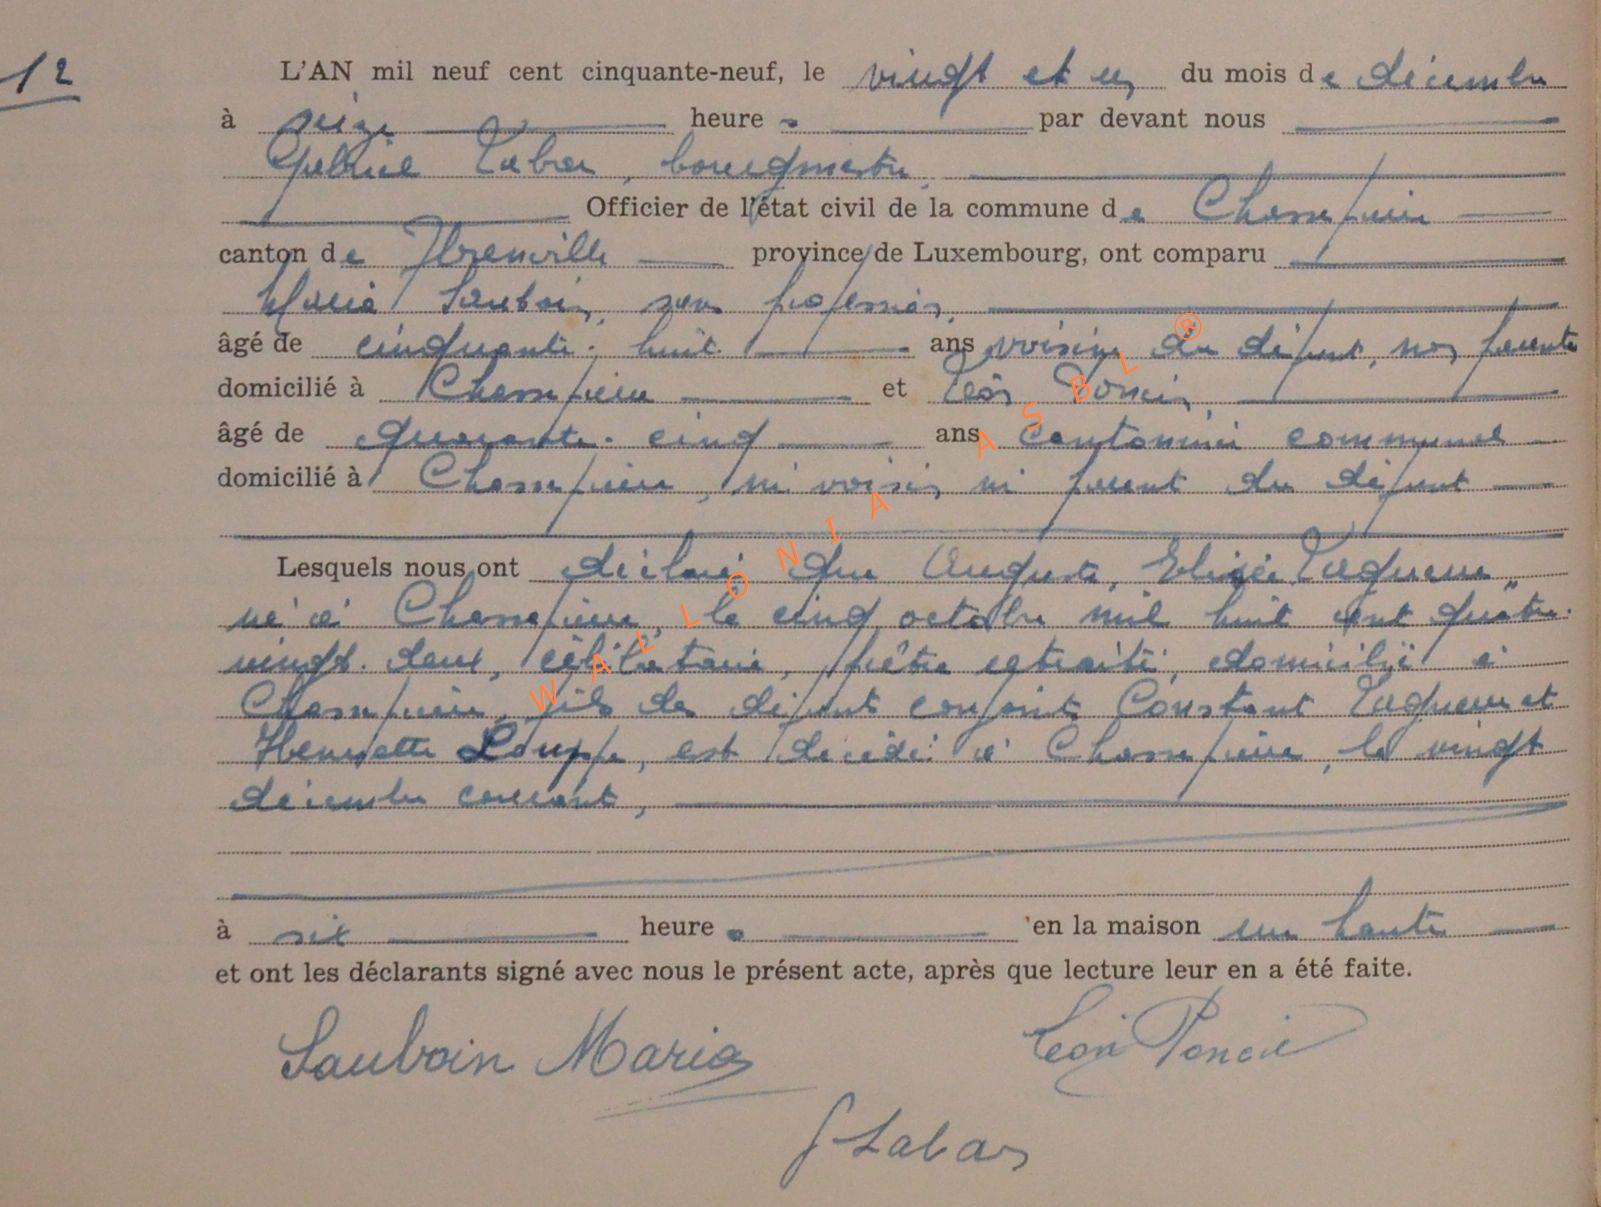 12
L'AN mil neuf cent cinquante-neuf, le vingt et un du mois de décembre
à seize heures par devant nous
Gabriel Labar, bourgmestre,
Officier de l'état civil de la commune de Chassepierre
canton de Florenville province de Luxembourg, ont comparu
Maria Sauboin, sans profession,
âgé de cinquante-huit ans voisine du défunt, non parente
domicilié à Chassepierre et Léon Poncin,
âgé de quarante-cinq ans cantonnier communal
domicilié à Chassepierre, ni voisin ni parent du défunt
Lesquels nous ont déclaré que Auguste, Elisée Laqueue,
né à Chassepierre, le cinq octobre mil huit cent quatre-
vingt-deux, célibataire, prêtre retraité, domicilié à
Chassepierre, fils des défunts conjoints Constant Laqueue et
Henriette Louppe, est décédé à Chassepierre, le vingt
décembre courant,
à six heures en la maison une hante
et ont les déclarants signé avec nous le présent acte, après que lecture leur en a été faite.
Sauboin Maria Léon Poncin
G Labar
WALLONIA ASBL ®